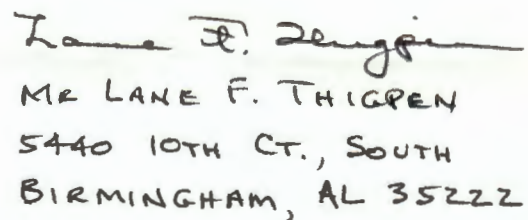 Lane F. Thigpen
MR LANE F. THIGPEN
5440 10TH CT., SOUTH
BIRMINGHAM, AL 35222